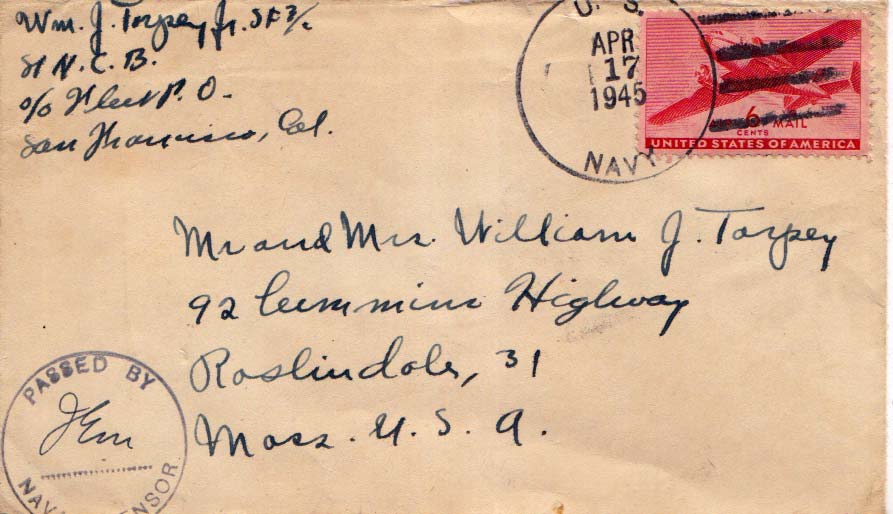 Wm. J. Torpey Jr. SF 3/c
81 N.C.B.
c/o Fleet P.O.
San Francisco, Cal.
U. S.
APR
17
1945
NAVY
6 MAIL
CENTS
UNITED STATES OF AMERICA
Mr and Mrs. William J. Torpey
92 Cummins Highway
Roslindale, 31
Mass. U. S. A.
PASSED BY
NAV ENSOR